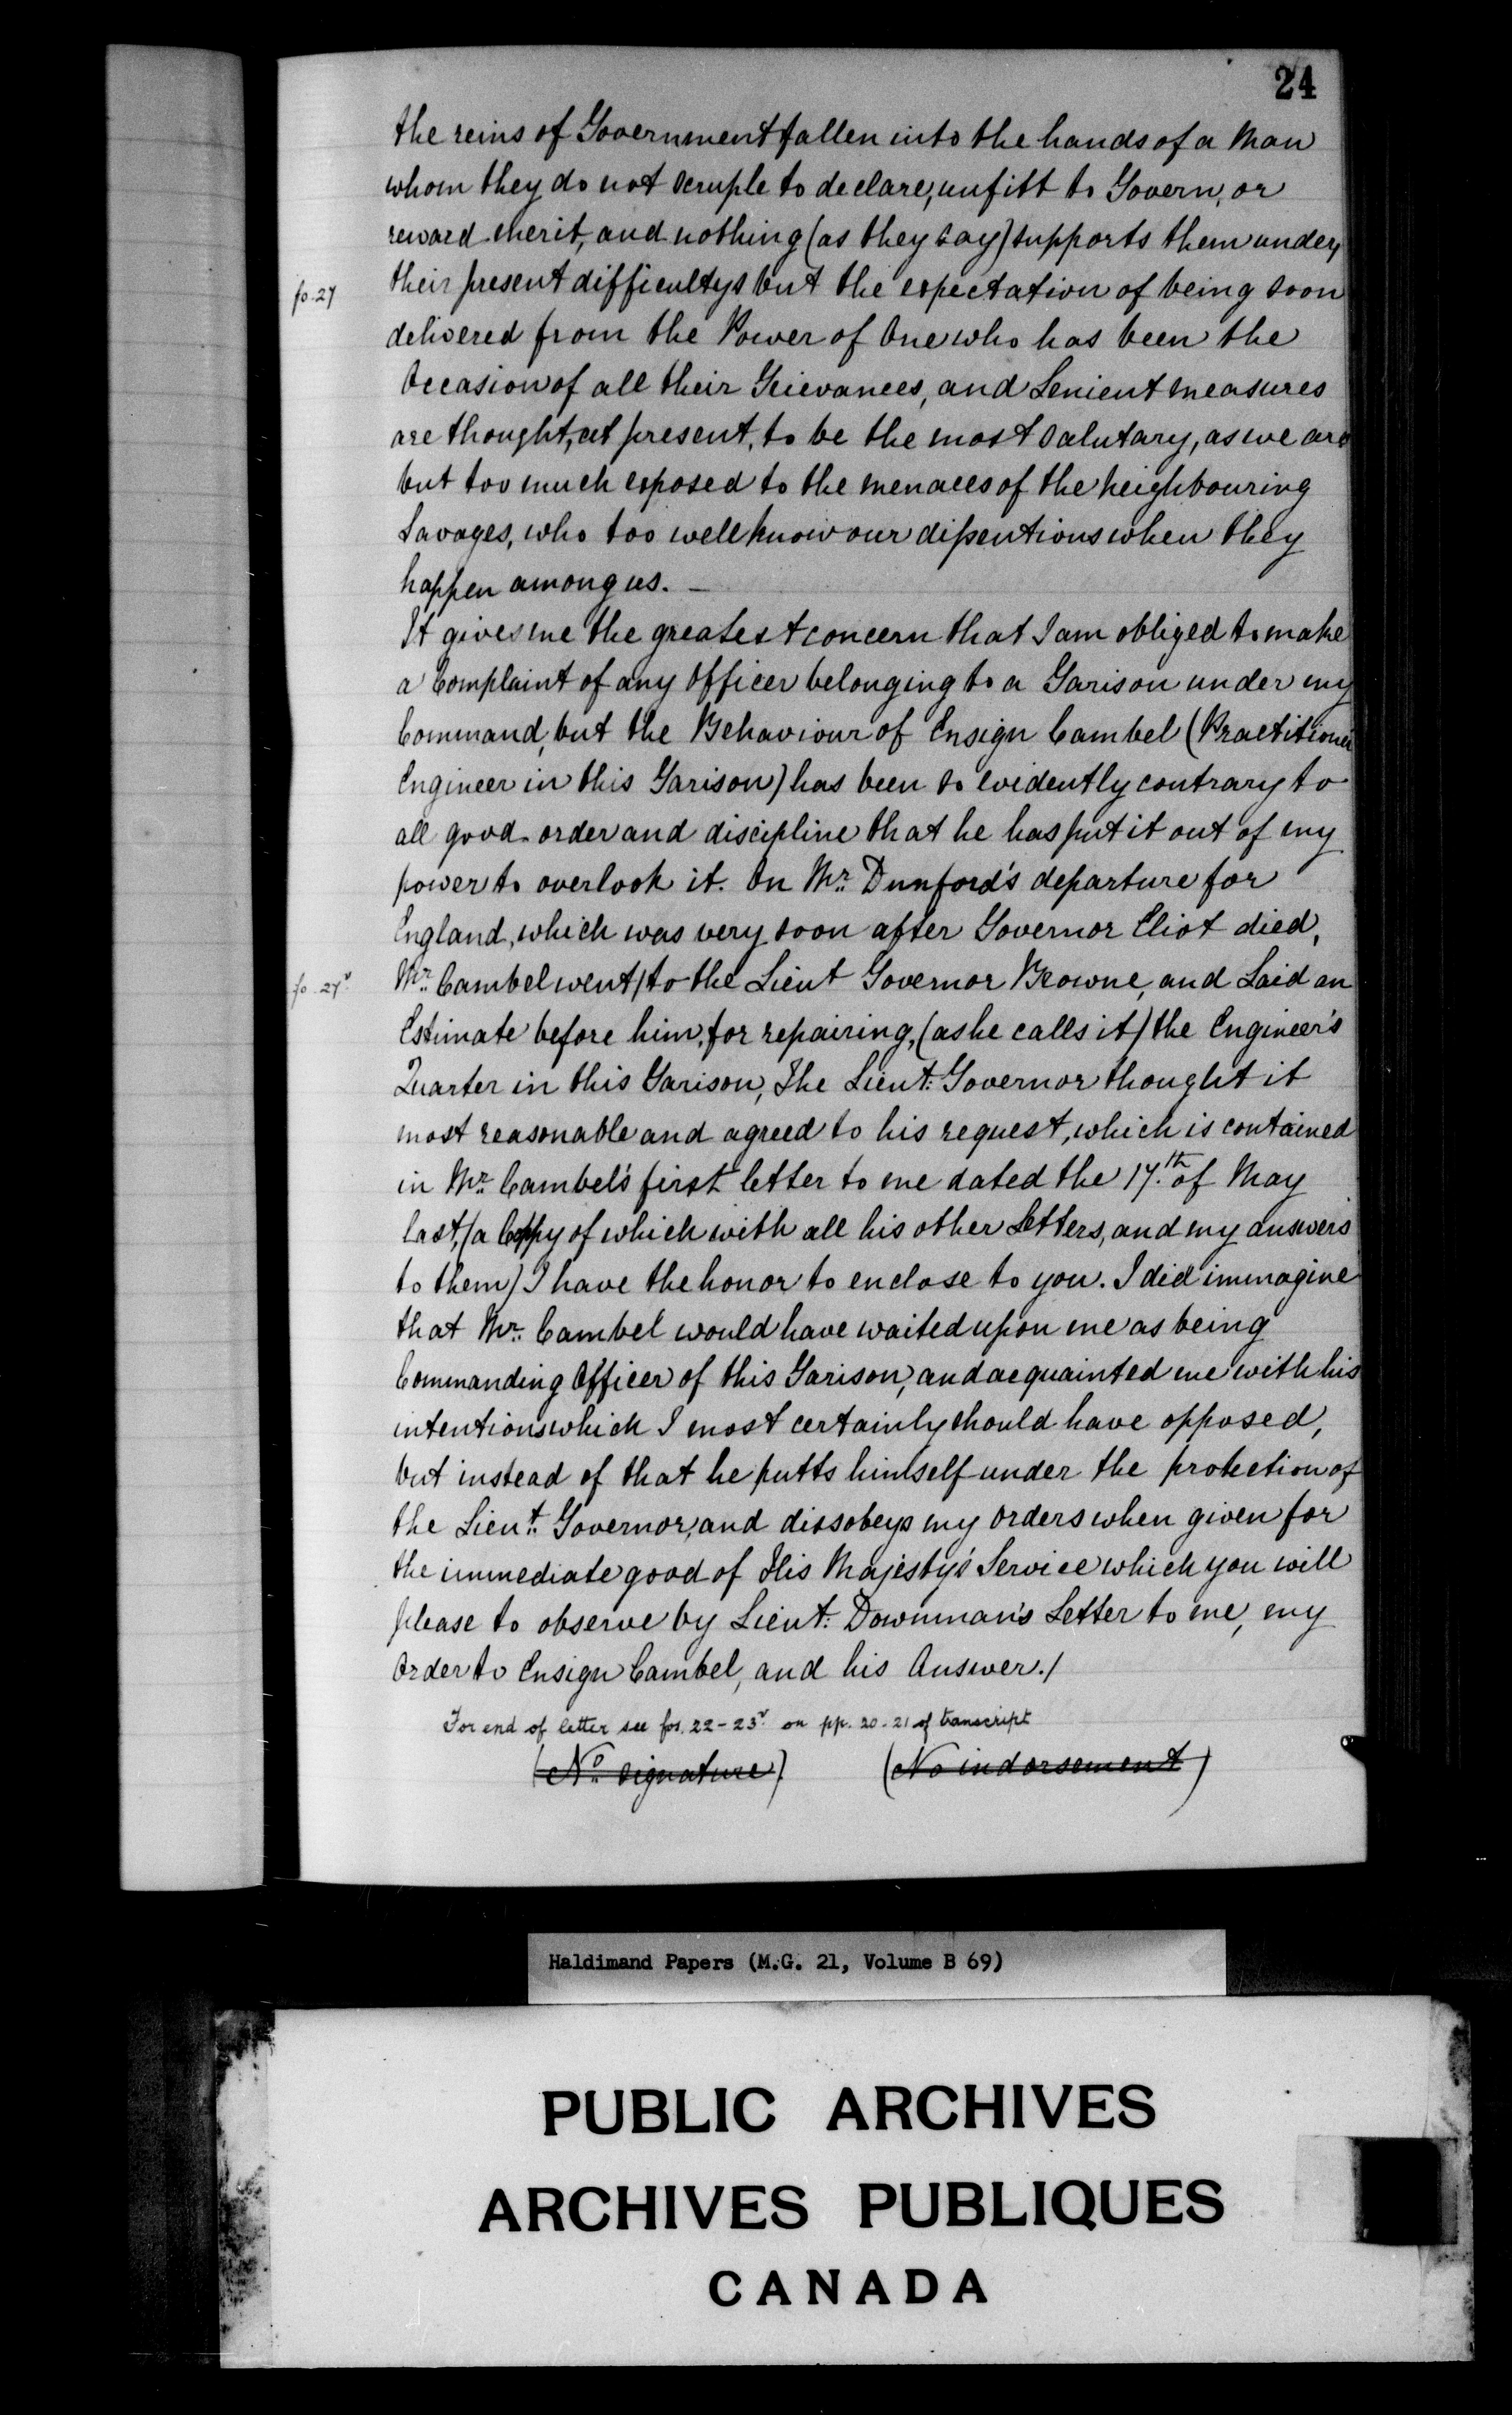 24
the reins of Government fallen into the hands of a Man
whom they do not scruple to declare, unfitt to Govern, or
reward merit, and nothing (as they say) supports them under,
fo. 27
their present difficultys but the expectation of being soon
delivered from the Power of One who has been the
Occasion of all their Grievances, and Lenient measures
are thought, at present, to be the most salutary, as we are
but too much exposed to the menaces of the heighbouring
Savages, who too well know our dißentions when they
happen among us. —
It gives me the greatest concern that I am obliged to make
a Complaint of any Officer belonging to a Garison under my
Command, but the Behaviour of Ensign Cambel (Practitioner
Engineer in this Garison) has been so evidently contrary to
all good order and discipline that he has put it out of my
power to overlook it. On Mr. Dunford's departure for
England, which was very soon after Governor Eliot died,
fo. 27v
Mr. Cambel went/to the Lieut Governor Browne, and Laid an
Estimate before him, for repairing, (as he calls it) the Engineer's
Quarter in this Garison, The Lieut: Governor thought it
most reasonable and agreed to his request, which is contained
in Mr. Cambel's first letter to me dated the 17.th of May
last, (a Coppy of which with all his other Letters, and my answers
to them) I have the honor to enclose to you. I did immagine
that Mr. Cambel would have waited upon me as being
Commanding Officer of this Garison, and acquainted me with his
intentions which I most certainly should have opposed,
but instead of that he putts himself under the protection of
the Lieut: Governor, and dissobeys my orders when given for
the immediate good of His Majesty's Service which you will
please to observe by Lieut: Downman's Letter to me, my
Order to Ensign Cambel, and his Answer./
For end of letter see fos. 22-23v on pp. 20-21 of transcript
(No signature) (No indorsement)
Haldimand Papers (M.G. 21, Volume B 69)
PUBLIC ARCHIVES
ARCHIVES PUBLIQUES
CANADA